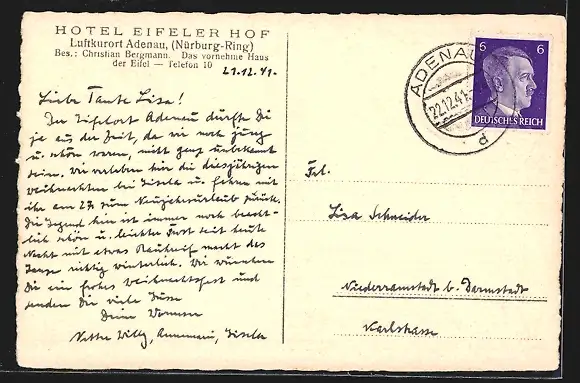 HOTEL EIFELER HOF
Luftkurort Adenau, (Nürburg-Ring)
Bes.: Christian Bergmann. Das vornehme Haus
der Eifel — Telefon 10
21.12.41.
Liebe Tante Lisa!
Der Eifelort Adenau dürfte Di
je aus der Zeit, da wir noch jung
u. schön waren, nicht ganz unbekannt
sein. Wir verleben hier die diesjährigen
Weihnachten bei Gisela u. fahren mit
ihr am 27. zum Neujahrsurlaub zurück.
Die Gegend hier ist immer noch
schön u. leichter Frost seit heute
Nacht mit etwas Rauhreif macht das
Ganze richtig winterlich. Wir wünschen
Dir ein frohes Weihnachtsfest und
senden Dir viele Grüsse
Deine
Vetter Willy, Annemarie, Gisela
ADENAU
22.12.41
d
6 6
DEUTSCHES REICH
Frl.
Lisa Schneider
Niederramstadt b. Darmstadt
Karlstrasse